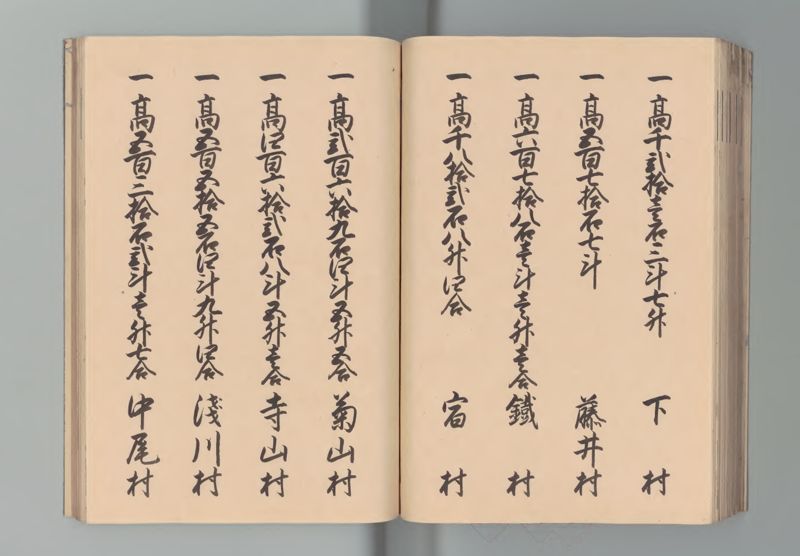 一高千弐拾壱石三斗七升 下村
一高五百七拾石七斗 藤井村
一高六百七拾八石壱斗壱升壱合 鐵村
一高千八拾弐石八升四合 宿村
一高弐百六拾九石四斗五升五合 菊山村
一高四百六拾弐石八斗五升壱合 寺山村
一高五百五拾五石四斗九升四合 淺川村
一高五百二拾石弐斗壱升七合 中尾村